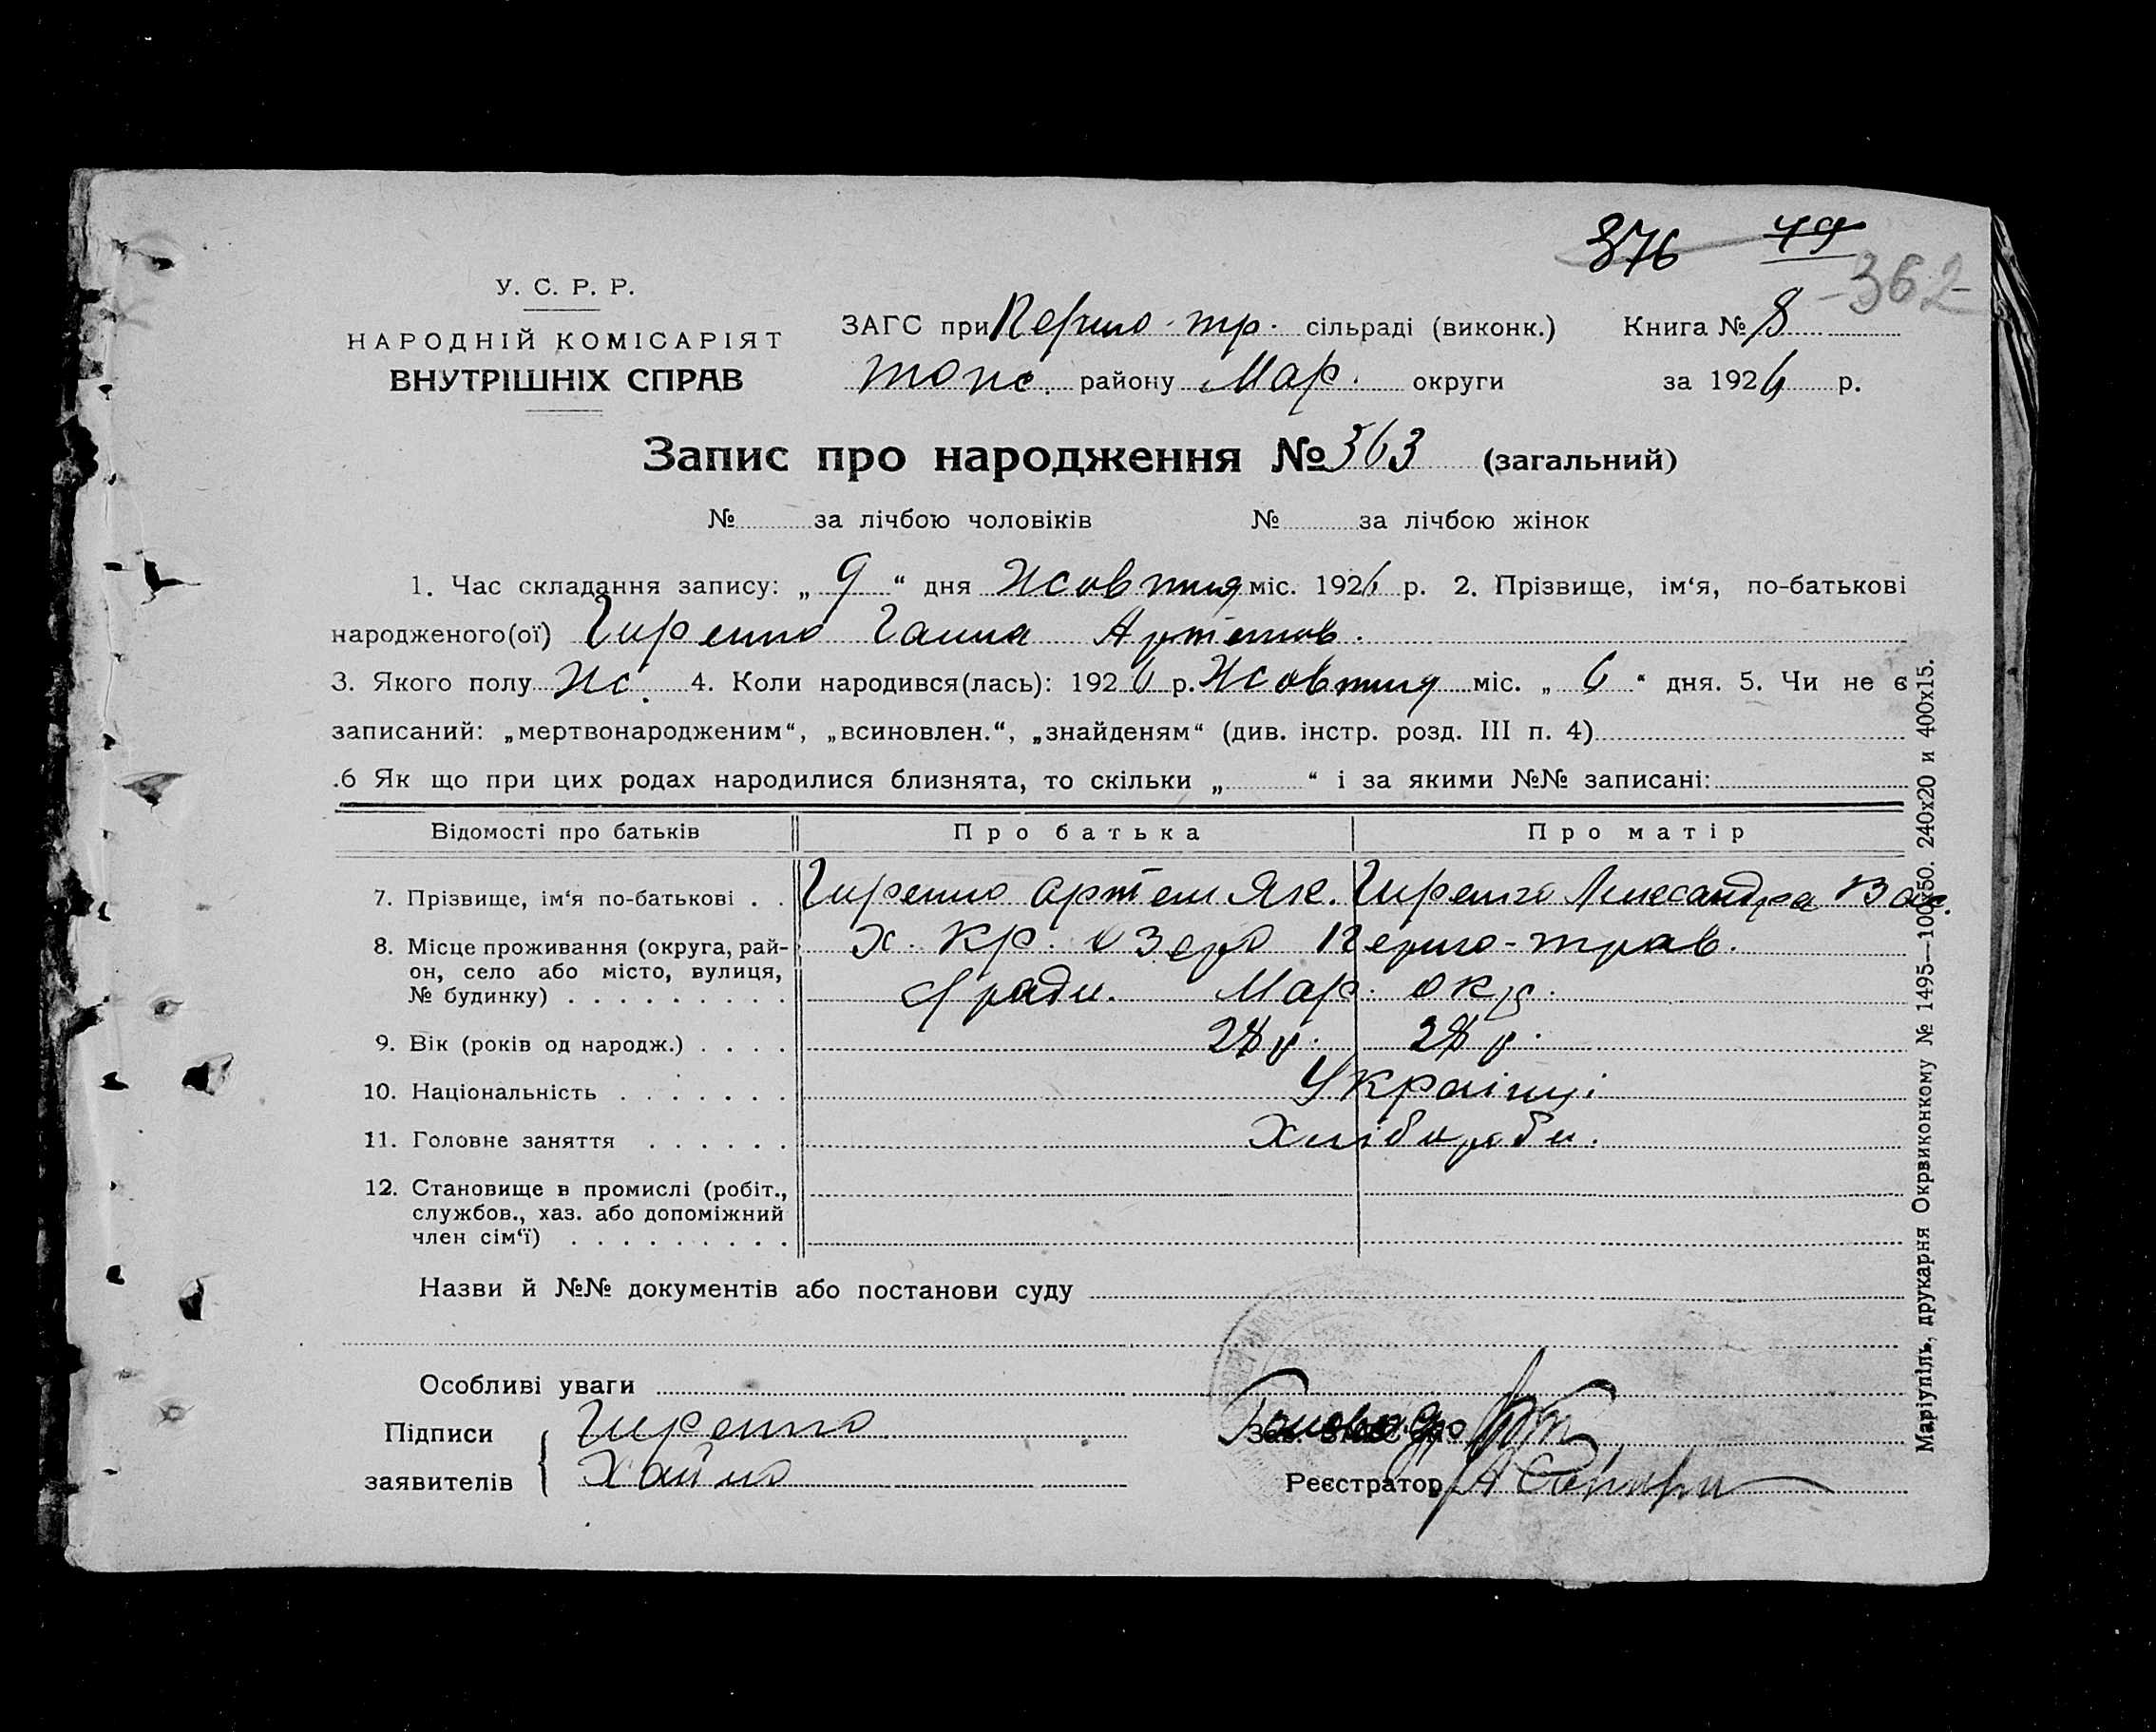 376 49
362
У. С. Р. Р.
НАРОДНІЙ КОМІСАРІЯТ
ВНУТРІШНІХ СПРАВ
ЗАГС при Першо-тр. сільраді (виконк.) Книга № 8
району Мар. округи за 1926 р.
Запис про народження № 363 (загальний)
№ за лічбою чоловіків № за лічбою жінок
1. Час складання запису: „ 9 “ дня Жовтня міс. 1926 р. 2. Прізвище, ім‘я, по-батькові
народженого(ої) Гиренко Ганна Артемов.
3. Якого полу Ж. 4. Коли народився(лась): 1926 р. Жовтня міс. „ 6 “ дня. 5. Чи не є
записаний: „мертвонародженим“, „всиновлен.“, „знайденям“ (див. інстр. розд. III п. 4)
.6 Як що при цих родах народилися близнята, то скільки „ “ і за якими №№ записані:
Відомості про батьків Про батька Про матір
7. Прізвище, ім‘я по-батькові . . Гиренко Артем Як. Гиренко Лександра Вас.
8. Місце проживання (округа, рай- х. Кр. Озеро Першо-трав.
он, село або місто, вулиця,
№ будинку) . . . . . . . . . с/ради. Мар. окр.
9. Вік (років од народж.) . . . . 28 р. 28 р.
10. Національність . . . . . . . Українці
11. Головне заняття . . . . . . Хлібороби.
12. Становище в промислі (робіт.,
службов., хаз. або допоміжний
член сім‘ї) . . . . . . . . .
Назви й №№ документів або постанови суду
Особливі уваги
Підписи Гиренко Голова
заявителів Хайло Реєстратор
Маріупіль, друкарня Окрвиконкому № 1495—100х50. 240х20 и 400х15.